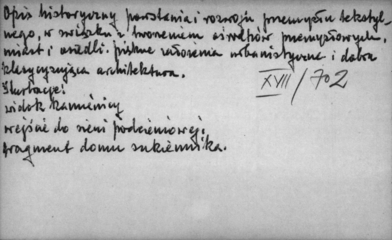 Opis historyczny powstania i rozwoju przemysłu tekstyl-
nego, w związku z tworzeniem ośrodków przemysłowych,
miast i osiedli. piękne założenia urbanistyczne i dobra
klasycyzująca architektura.
XVII/702
Ilustracje:
widok kamienicy
wejście do sieni podcieniowej;
fragment domu sukiennika.